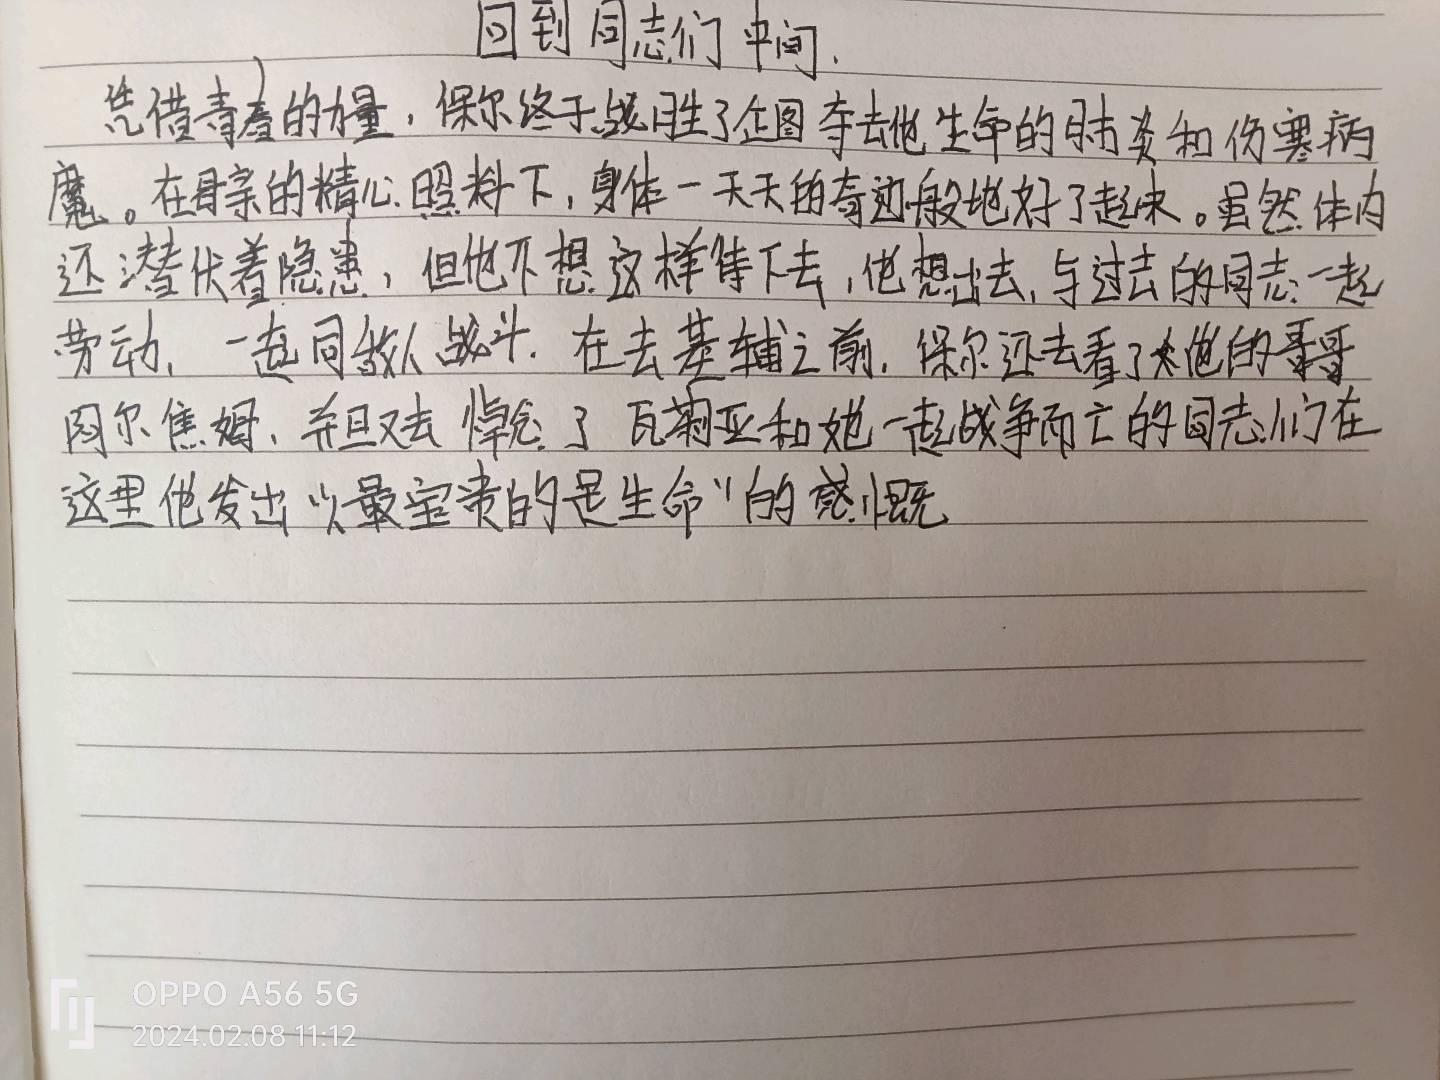 回到同志们中间.
凭借青春的力量，保尔终于战胜了企图夺去他生命的肺炎和伤寒病
魔。在母亲的精心照料下，身体一天天的奇迹般地好了起来。虽然体内
还潜伏着隐患，但他不想这样等下去，他想出去，与过去的同志一起
劳动，一起同敌人战斗.在去基辅之前，保尔还去看了他的哥哥
阿尔焦姆，并且又去悼念了瓦莉亚和她一起战争而亡的同志们在
这里他发出“最宝贵的是生命”的感慨
OPPO A56 5G
2024.02.08 11:12